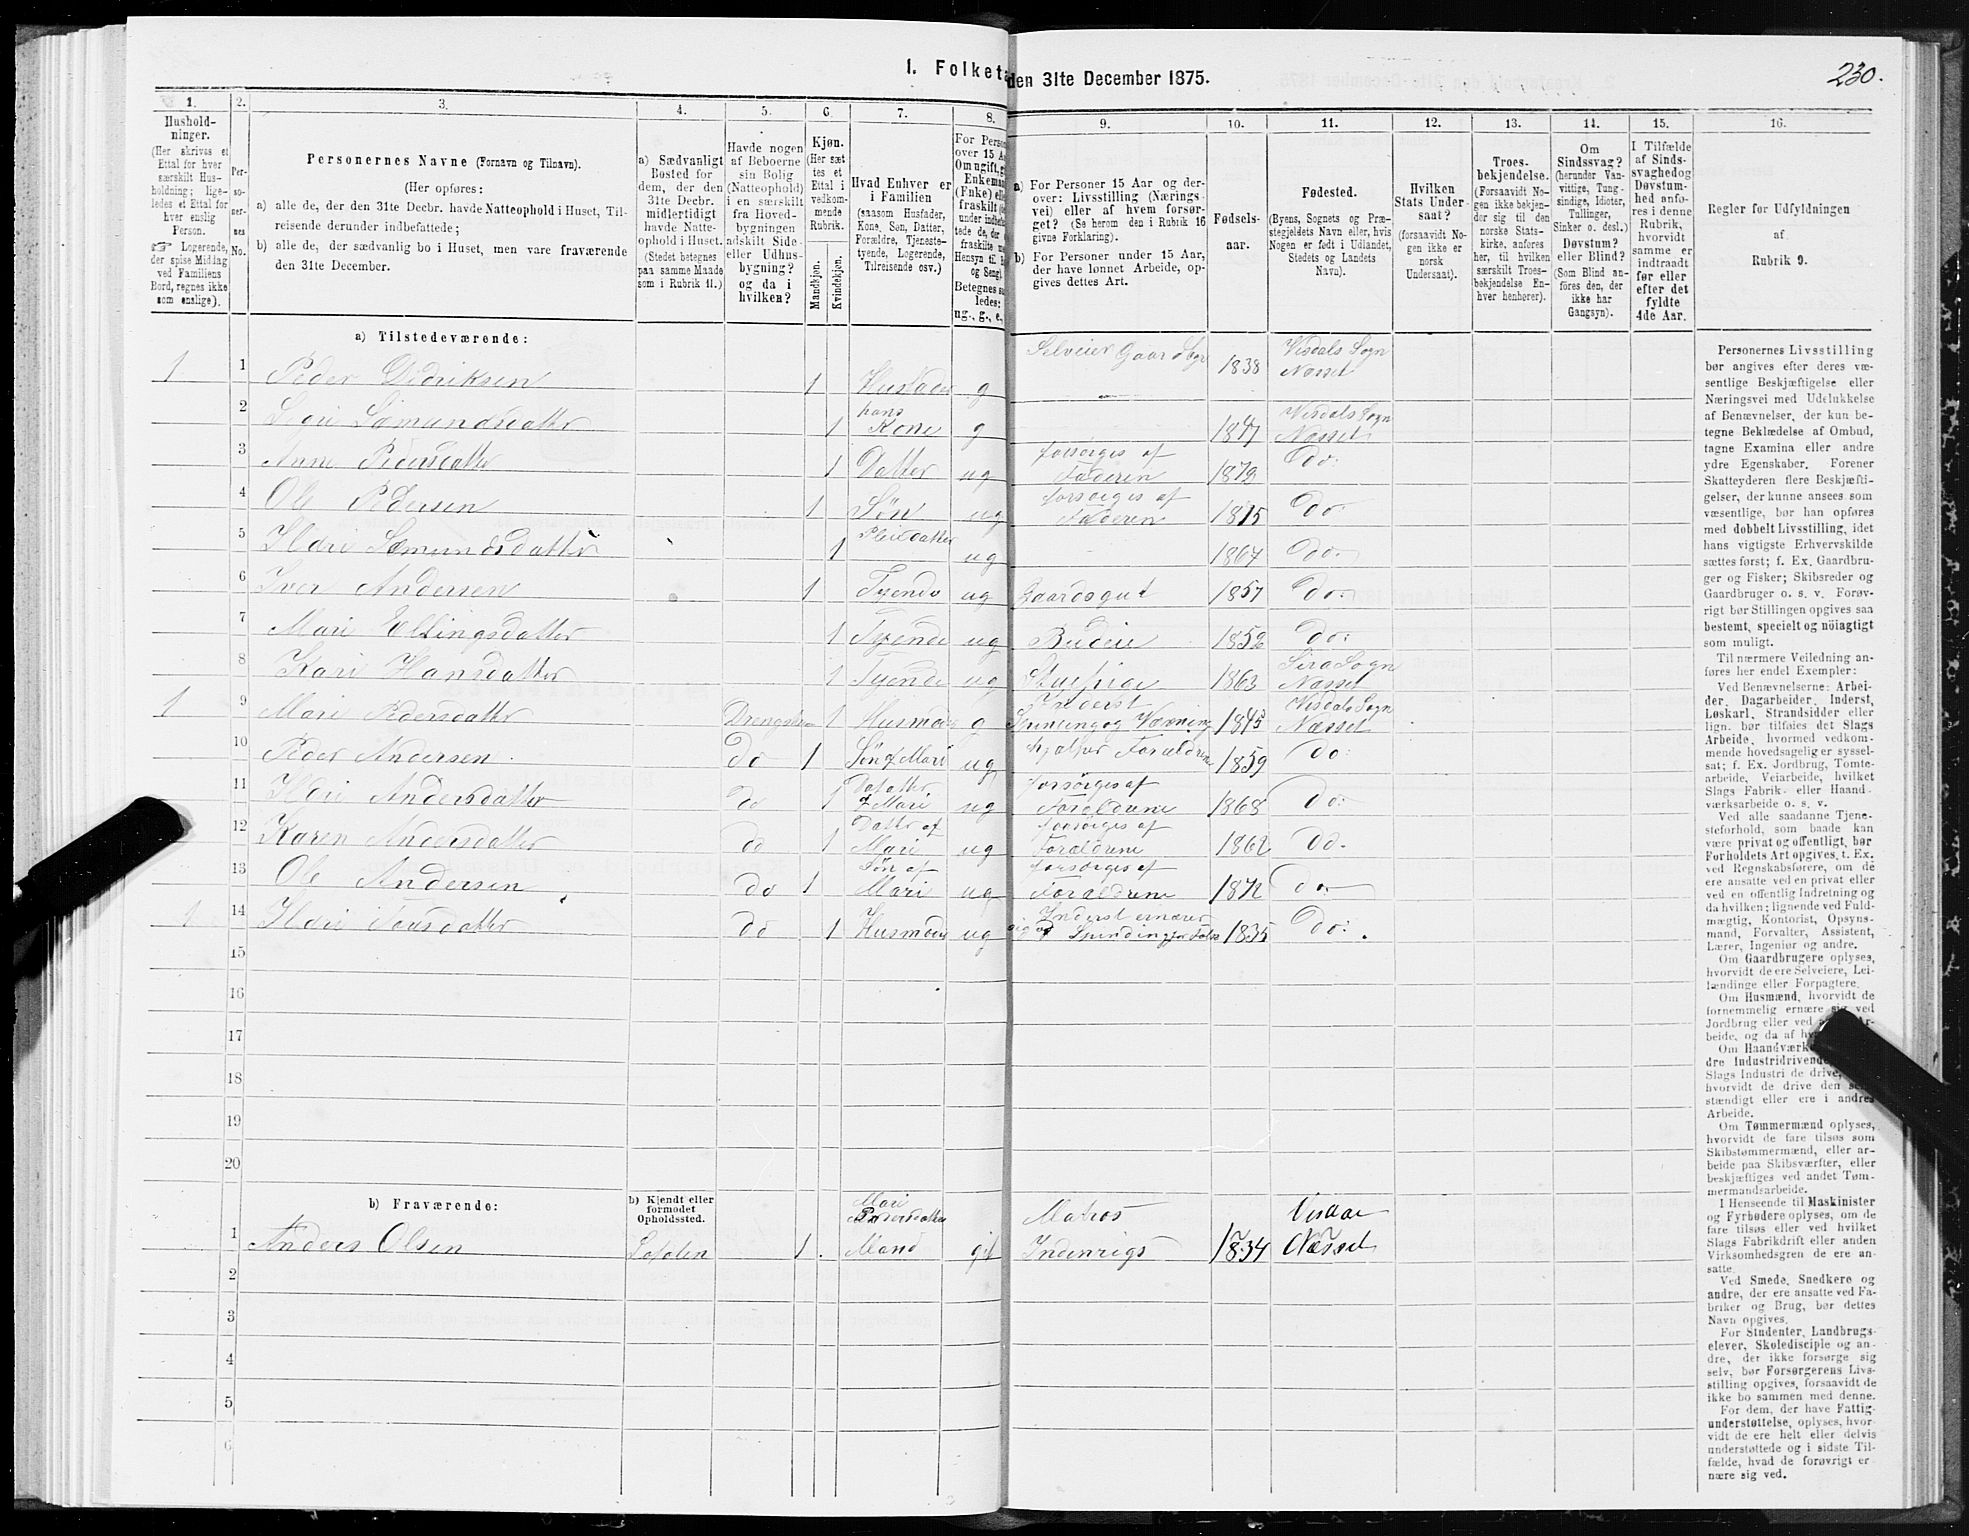 1. Folketæ den 31te December 1875.
230.
1.
Hushold-
ninger.
(Her skrives et
Ettal for hver
særskilt Hus-
holdning; lige-
ledes et Ettal for
hver enslig
Person.
☞ Logerende,
der spise Middag
ved Familiens
Bord, regnes ikke
som enslige).
2.
Per-
so-
ner-
nes
No.
3.
Personernes Navne (Fornavn og Tilnavn).
(Her opføres:
a) alle de, der den 31te Decbr. havde Natteophold i Huset, Til-
reisende derunder indbefattede;
b) alle de, der sædvanlig bo i Huset, men vare fraværende
den 31te December.
4.
a) Sædvanligt
Bosted for
dem, der den
31te Decbr.
midlertidigt
havde Natte-
ophold i Huset.
(Stedet betegnes
paa samme Maade
som i Rubrik 11.)
5.
Havde nogen
af Beboerne
sin Bolig
(Natteophold)
i en særskilt
fra Hoved-
bygningen
adskilt Side-
eller Udhus-
bygning?
og da i
hvilken?
6.
Kjøn.
(Her sæt
tes et
Ettal i
vedkom-
mende
Rubrik.
Mandkjøn.
Kvindekjøn.
7.
Hvad Enhver er
i Familien
(saasom Husfader,
Kone, Søn, Datter,
Forældre, Tjeneste-
tyende, Logerende,
Tilreisende osv.)
8.
For Perso
over 15 A
Om ugift, g
Enkeman
(Enke) elle
fraskilt (
under indbefat
tede de, der e
fraskilte m
Hensyn til
og Seng).
Betegnes saa
ledes:
ug., g., e.,
9.
a) For Personer 15 Aar og der-
over: Livsstilling (Nærings
vei) eller af hvem forsør-
get? (Se herom den i Rubrik 16
givne Forklaring).
b) For Personer under 15 Aar,
der have lønnet Arbeide, op-
gives dettes Art.
10.
Fødsels-
aar.
11.
Fødested.
(Byens, Sognets og Præ-
stegjeldets Navn eller, hvis
Nogen er født i Udlandet,
Stedets og Landets
Navn).
12.
Hvilken
Stats Under-
saat?
(forsaavidt No-
gen ikke er
norsk
Undersaat).
13.
Troes-
bekjendelse.
(Forsaavidt No-
gen ikke bekjen-
der sig til den
norske Stats-
kirke, anføres
her, til hvilken
særskilt Troes-
bekjendelse En-
hver henhører).
14.
Om
Sindssvag?
(herunder Van-
vittige, Tung-
sindige, Idioter,
Tullinger,
Sinker o. desl.)
Døvstum?
eller Blind?
(Som Blind an-
føres den, der
ikke har
Gangsyn).
15.
I Tilfælde
af Sinds-
svaghed og
Døvstum-
hed anfø-
res i denne
Rubrik,
hvorvidt
samme er
indtraadt
før eller
efter det
fyldte
4de Aar.
16.
Regler for Udfyldningen
af
Rubrik 9.
a) Tilstedeværende:
1 1 Peder Didriksen 1 Husfader g Selveier Gaar 1838 Visdals Sogn Næsset
2 Samundsdatter 1 hans Kone g Visdals Sogn Næsset
3 Anne Pedersdatter 1 Datter ug forsørges af Faderen 1872 Do:
4 Ole Pedersen 1 Søn ug forsørges af Faderen 1875 Do
5 Ildri Sæmundsdatter 1 Pleiedatter ug 1867 Do.
6 Iver Andersen 1 Tyende ug Gaardsgut 1857 Do:
7 Mari Ellingsdatter 1 Tyende ug Budeie 1852 Do:
8 Kari Hansdatter 1 Tyende ug Stuepige 1863 Sira Sogn Næsset
1 9 Mari Pedersdatter 1 Husmoder g Inderst Spinding og Vævning Visdals Sogn Næsset
10 Peder Andersen. do 1 Søn af Mari ug hjælper Forældrene 1859 Do:
11 Ildri Andersdatter do 1 Datter af Mari ug forsørges af Forældrene 1868 Do:
12 Karen Andersdatter do 1 Datter af Mari ug forsørges af Forældrene 1862 Do.
13 Ole Andersen do 1 Søn af Mari ug forsørges af Forældrene 1872 Do
1 14 Ildri do 1 Husmoder ug Inderst ernærer sig ved Spinding for Folk 1835 Do:
15
16
17
18
19
20
b) Fraværende:
b) Kjendt eller
formodet
Opholdssted.
1 Anders Olsen Lofoten 1. Mari Pedersdatter Mand gift Matros Indenrigs 1834 Visdal Næsset
2
3
4
5
6
Personernes Livsstilling
bør angives efter deres væ-
sentlige Beskjæftigelse eller
Næringsvei med Udelukkelse
af Benævnelser, der kun be-
tegne Beklædelse af Ombud,
tagne Examina eller andre
ydre Egenskaber. Forener
Skatteyderen flere Beskjæfti-
gelser, der kunne ansees som
væsentlige, bør han opføres
med dobbelt Livsstilling, idet
hans vigtigste Erhvervskilde
sættes først; f. Ex. Gaardbru-
ger og Fisker; Skibsreder og
Gaardbruger o. s. v. Forøv-
rigt bør Stillingen opgives saa
bestemt, specielt og nöiagtigt
som muligt.
Til nærmere Veiledning an-
føres her endel Exempler:
Ved Benævnelserne: Arbei-
der, Dagarbeider, Inderst,
Løskarl, Strandsidder eller
lign. bør tilføies det Slags
Arbeide, hvormed vedkom-
mende hovedsagelig er syssel-
sat; f. Ex. Jordbrug, Tomte-
arbeide, Veiarbeide, hvilket
Slags Fabrik- eller Haand-
værksarbeide o. s. v.
Ved alle saadanne Tjene-
steforhold, som baade kan
være privat og offentligt, bør
Forholdets Art opgives, t. Ex.
ved Regnskabsførere, om de
ere ansatte ved en privat eller
ved en offentlig Indretning og
da hvilken; lignende ved Fuld-
mægtig, Kontorist, Opsyns-
mand, Forvalter, Assistent,
Lærer, Ingeniør og andre.
Om Gaardbrugere oplyses,
hvorvidt de ere Selveiere, Lei-
lændinge eller Forpagtere.
Om Husmænd, hvorvidt de
fornemmelig ernære sig ved
Jordbrug eller ved Ar-
beide, og da af hv
Om Haandværk
dre Industridrivende
Slags Industri de drive,
hvorvidt de drive den sel
stændigt eller ere i andres
Arbeide.
Om Tømmermænd oplyses,
hvorvidt de fare tilsøs som
Skibstømmermænd, eller ar-
beide paa Skibsværfter, eller
beskjæftiges ved andet Tøm-
mermandsarbeide.
I Henseende til Maskinister
og Fyrbødere oplyses, om de
fare tilsøs eller ved hvilket
Slags Fabrikdrift eller anden
Virksomhedsgren de ere an-
satte.
Ved Smede, Snedkere og
andre, der ere ansatte ved Fa-
briker og Brug, bør dettes
Navn opgives.
For Studenter, Landbrugs-
elever, Skoledisciple og an-
dre, der ikke forsørge sig
selv, bør Forsørgerens Livs-
stilling opgives, forsaavidt de
ikke bo sammen med denne.
For dem, der have Fattig-
understøttelse, oplyses, hvor-
vidt de ere helt eller delvis
understøttede og i sidste Til-
fælde, hvad de forøvrigt er-
nære sig ved.